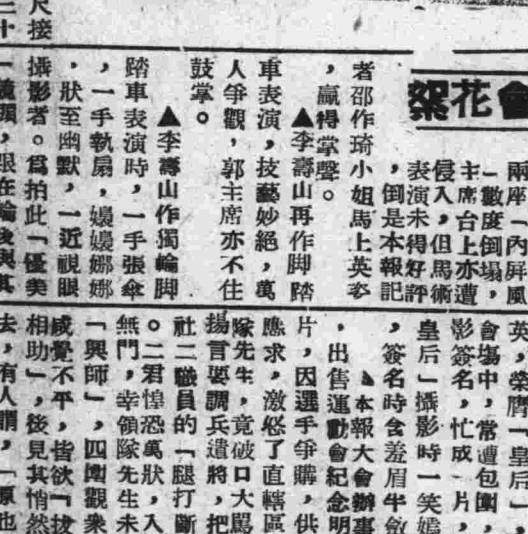 會花絮
兩座「內屏風
」數度倒塌,
主席台上亦遭
侵入,但馬術
表演未得好評
,倒是本報記
者邵作琦小姐馬上英姿
,贏得掌聲。
▲李壽山再作脚踏
車表演,技藝妙絕,萬
人爭觀,郭主席亦不住
鼓掌。
▲李壽山作獨輪脚
踏車表演時,一手張傘
,一手執扇,嬡嬡娜娜
,狀至幽默,一近視眼
攝影者。爲拍此「優美
鏡頭,跟在輪後與其
英,榮膺「皇后」,
會塲中,常遭包圍,
影簽名,忙成一片,
皇后」攝影時一笑嫣
,簽名時含羞眉半斂
▲本報大會辦事
,出售運動會紀念明
片,因選手爭購,供
應求,激怒了直轄區
隊先生,竟破口大罵
揚言要調兵遣將,把
社二職員的「腿打斷
。二君惶恐萬狀,入
無門,幸領隊先生未
「興師」,四圍觀衆
咸覺不平,皆欲「拔
相助」,後見其悄然
去,有人謂,「原也
尺接
二十